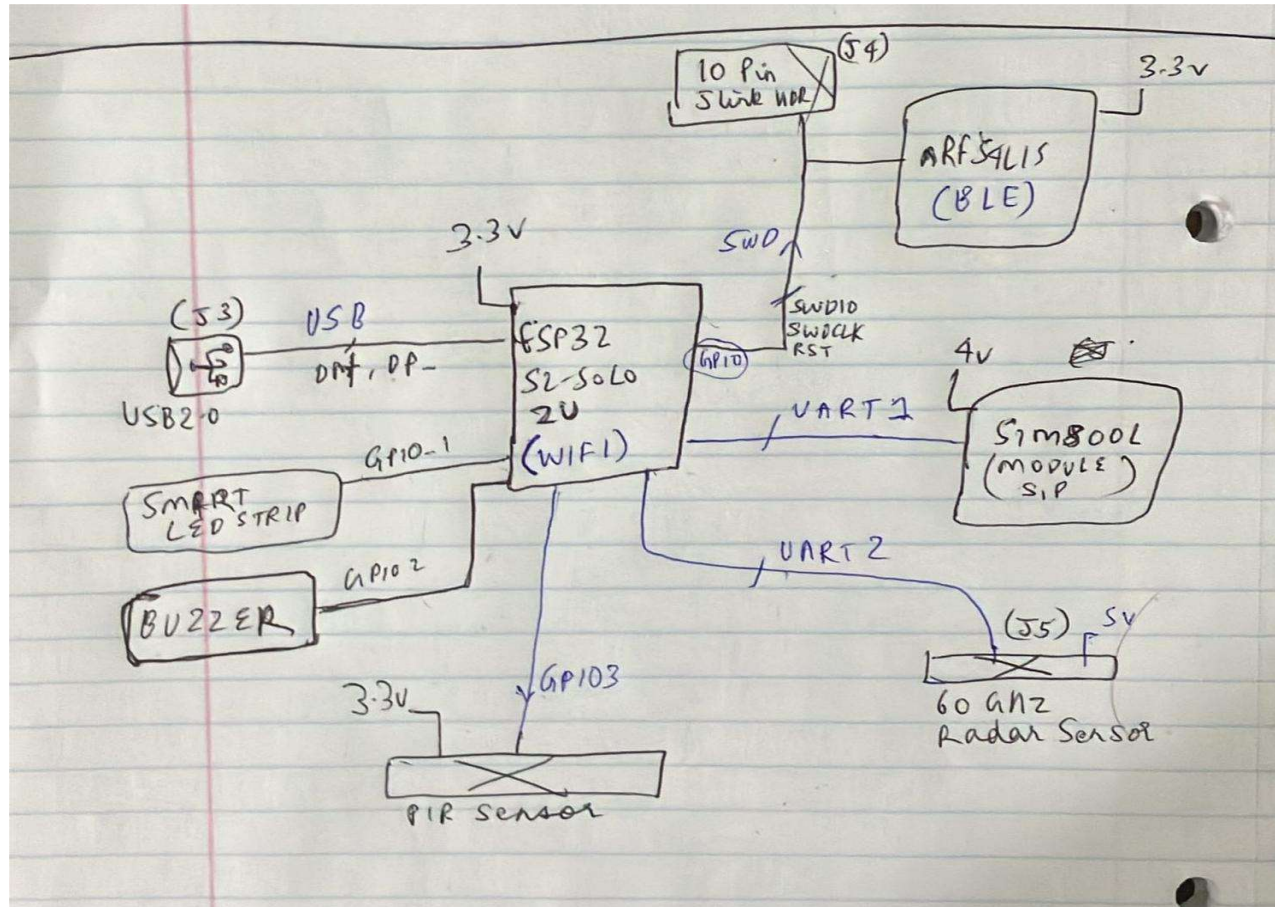 (J4)
10 Pin
Jlink HDR
3.3v
nRF54L15
(BLE)
SWD
SWDIO
SWDCLK
RST
3.3V
(J3)
USB
DM+, DP-
USB2.0
ESP32
S2-SOLO
2U
(WIFI)
GPIO
4v
UART 1
SIM800L
(MODULE
SIP)
GPIO-1
SMART
LED STRIP
UART 2
GPIO 2
BUZZER
(J5)
5V
GPIO3
60 GHz
Radar Sensor
3.3v
PIR Sensor